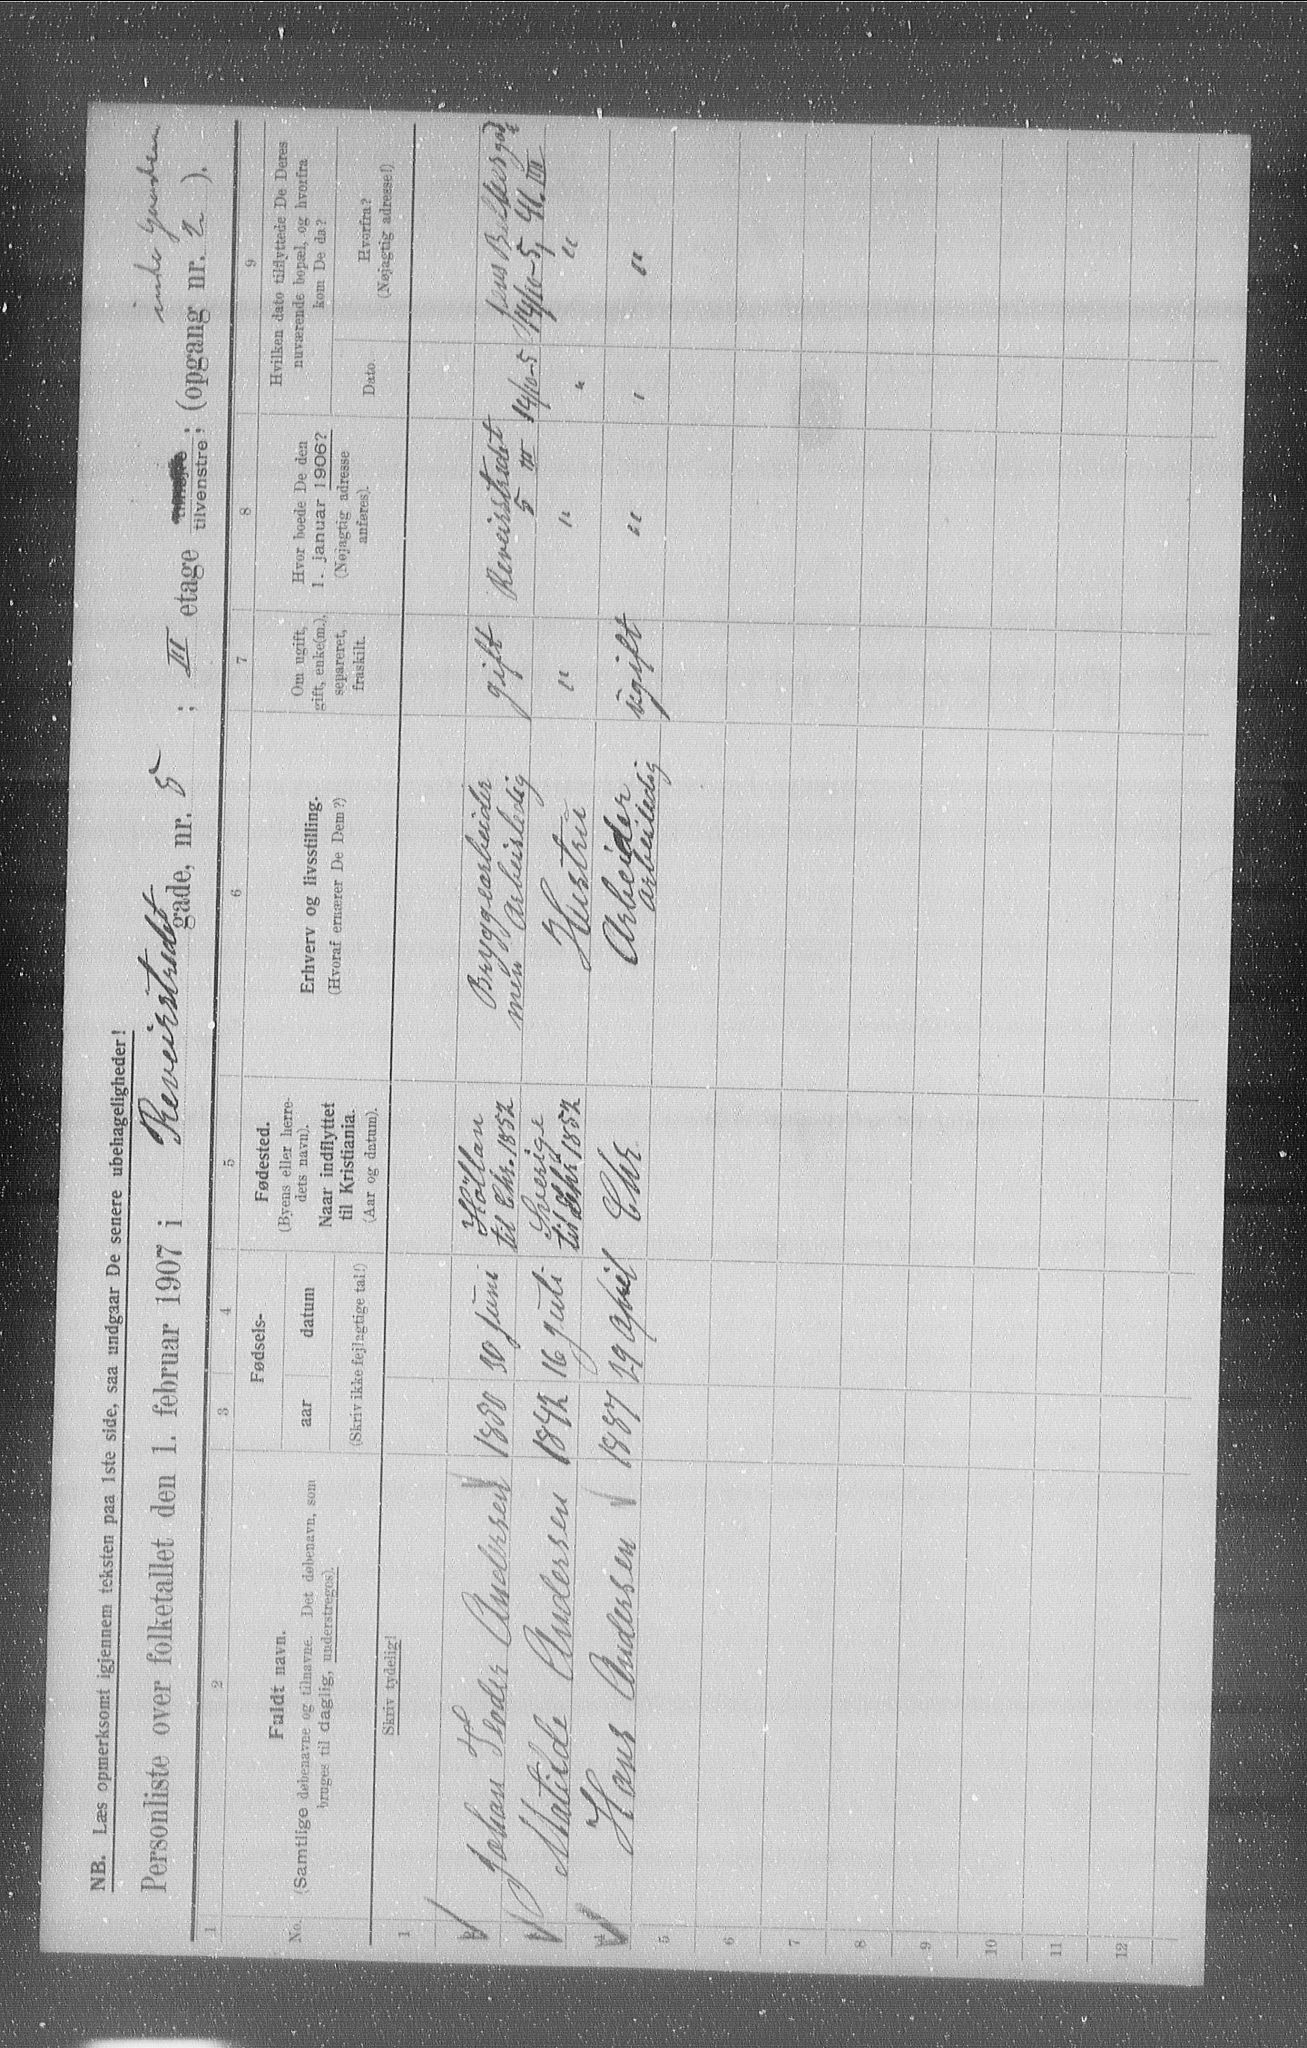 NB. Læs opmerksomt igjennem teksten paa 1ste side, saa undgaar De senere ubehageligheder!
inde Gaarden
Personliste over folketallet den 1. februar 1907 i Reveirstrædet gade, nr. 5 ; III etage tilvenstre ; (opgang nr. 2 ).
1 2 3 4 5 6 7 8 9
No.
Fuldt navn.
(Samtlige døbenavne og tilnavne. Det døbenavn, som
bruges til daglig, understreges).
Skriv tydelig!
Fødsels-
aar datum
(Skriv ikke fejlagtige tal!)
Fødested.
(Byens eller herre-
dets navn).
Naar indflyttet
til Kristiania.
(Aar og datum).
Erhverv og livsstilling.
(Hvoraf ernærer De Dem?)
Om ugift,
gift, enke(m.),
separeret,
fraskilt.
Hvor boede De den
1. januar 1906?
(Nøjagtig adresse
anføres).
Hvilken dato tilflyttede De Deres
nuværende bopæl, og hvorfra
kom De da?
Dato.
Hvorfra?
(Nøjagtig adresse!)
1
Johan Teodor Andersen 1850 30 juni Höllan til Chr. 1852 Bryggearbeider men arbeisledig gift Reveirstrædet 5 III 14/10-5 Jens Bielkes gad 14/10-5, 41. III
Matilde Andersen 1842 16 juli Sverige til Chr 1852 Hustru " " " "
Hans Andersen 1887 29 april Chr. Arbeider arbeiledig ugift " " "
5
6
7
8
9
10
11
12